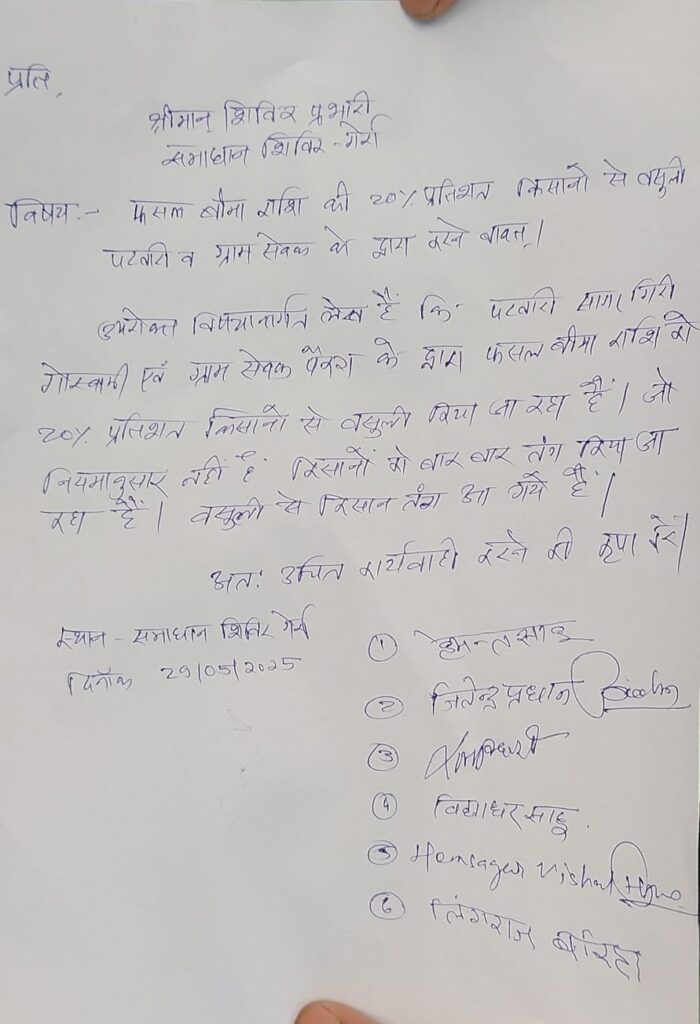 प्रति,
श्रीमान् शिविर प्रभारी
समाधान शिविर - गेर्रा
विषय:- फसल बीमा राशि की 20% प्रतिशत किसानों से वसुली
पटवारी व ग्राम सेवक के द्वारा करने बाबत्।
उपरोक्त विषयान्तर्गत लेख है कि पटवारी सागर गिरी
गोस्वामी एवं ग्राम सेवक पैंकरा के द्वारा फसल बीमा राशि को
20% प्रतिशत किसानों से वसुली किया जा रहा हैं। जो
नियमानुसार नहीं हैं किसानों को बार बार तंग किया जा
रहा हैं। वसुली से किसान तंग आ गये हैं।
अतः उचित कार्यवाही करने की कृपा करें।
स्थान - समाधान शिविर गेर्रा
दिनाँक 29/05/2025
① हेमन्त साहू
② जितेन्द्र प्रधान
③
④ विद्याधर साहू.
⑤ Hemsagar Vishal
⑥ लिंगराज बरिहा